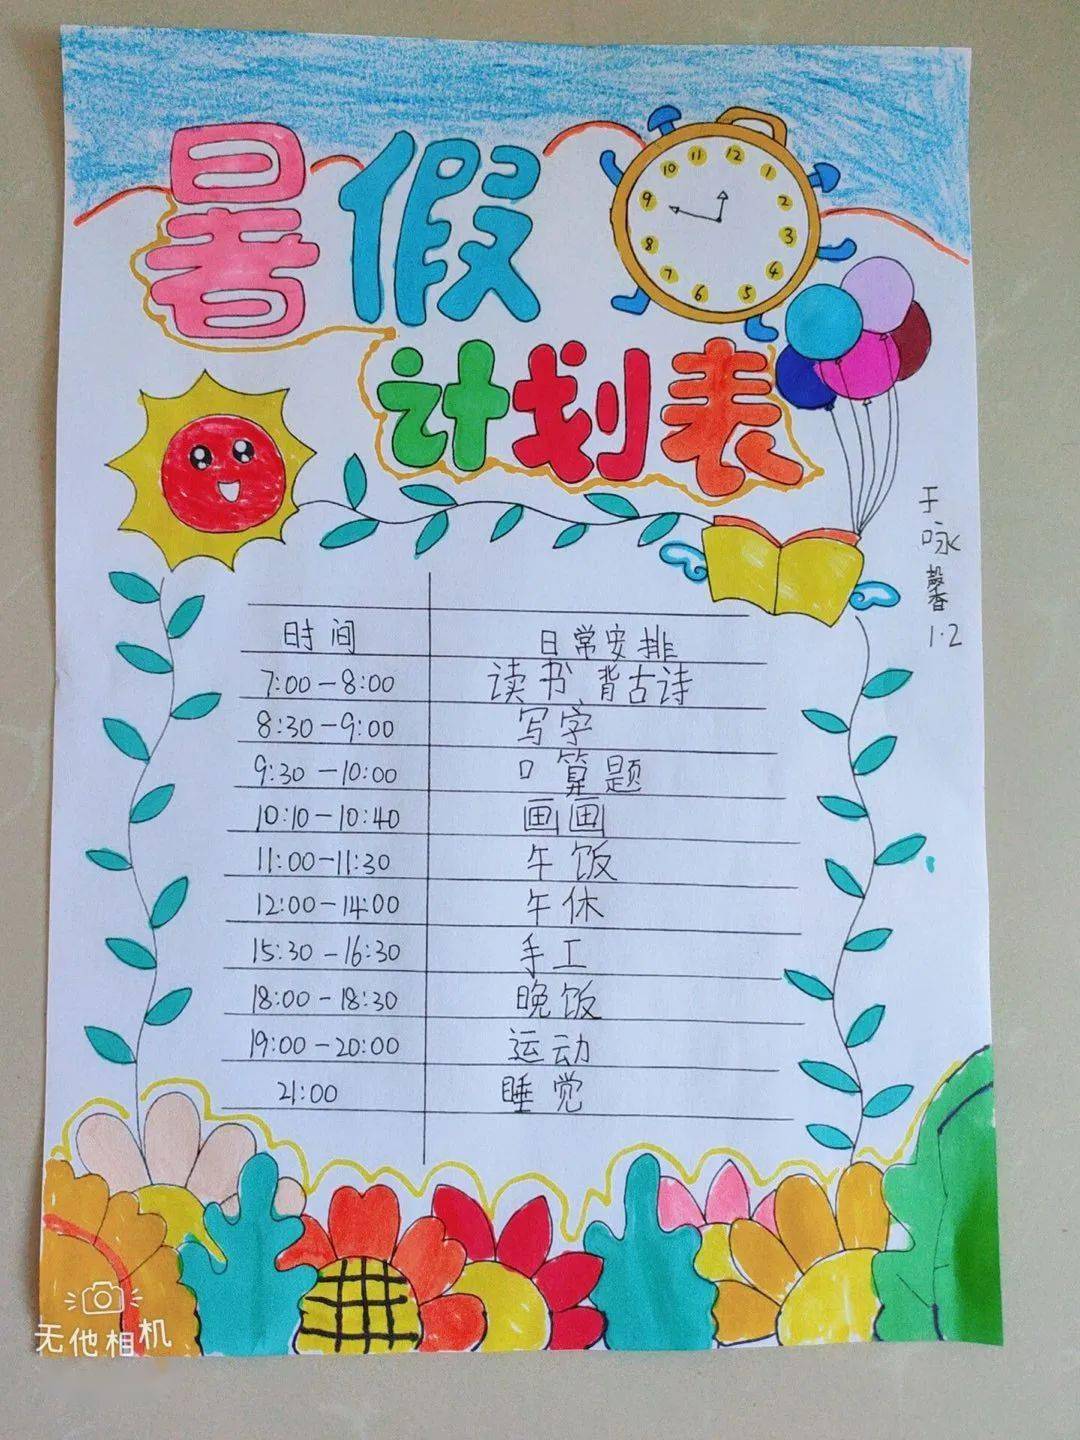 暑假
12
1
2
3
4
5
6
7
8
9
10
11
计划表
于咏馨
1·2
时间 日常安排
7:00-8:00 读书 背古诗
8:30-9:00 写字
9:30-10:00 口算题
10:10-10:40 画画
11:00-11:30 午饭
12:00-14:00 午休
15:30-16:30 手工
18:00-18:30 晚饭
19:00-20:00 运动
21:00 睡觉
无他相机